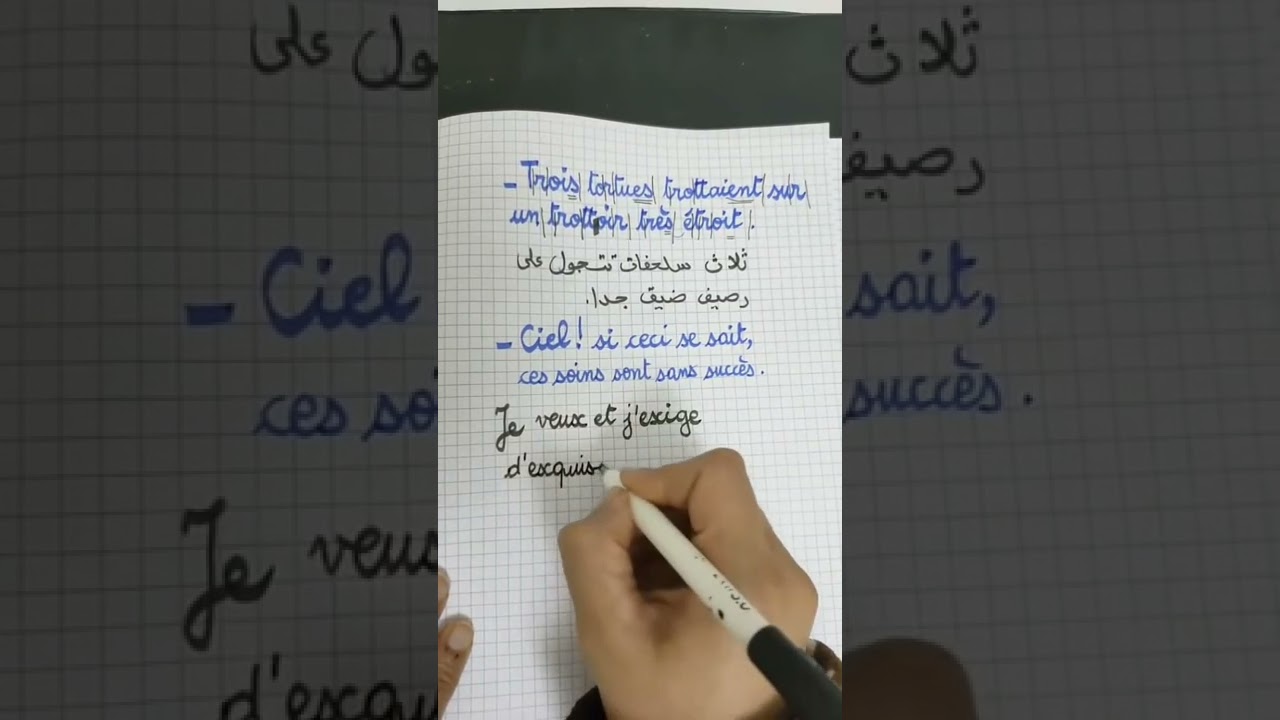 - Trois tortues trottaient sur
un trottoir très étroit.
ثلاث سلحفات تتجول على
رصيف ضيق جدا.
- Ciel! si ceci se sait,
ces soins sont sans succès.
Je veux et j'exige
d'exquise